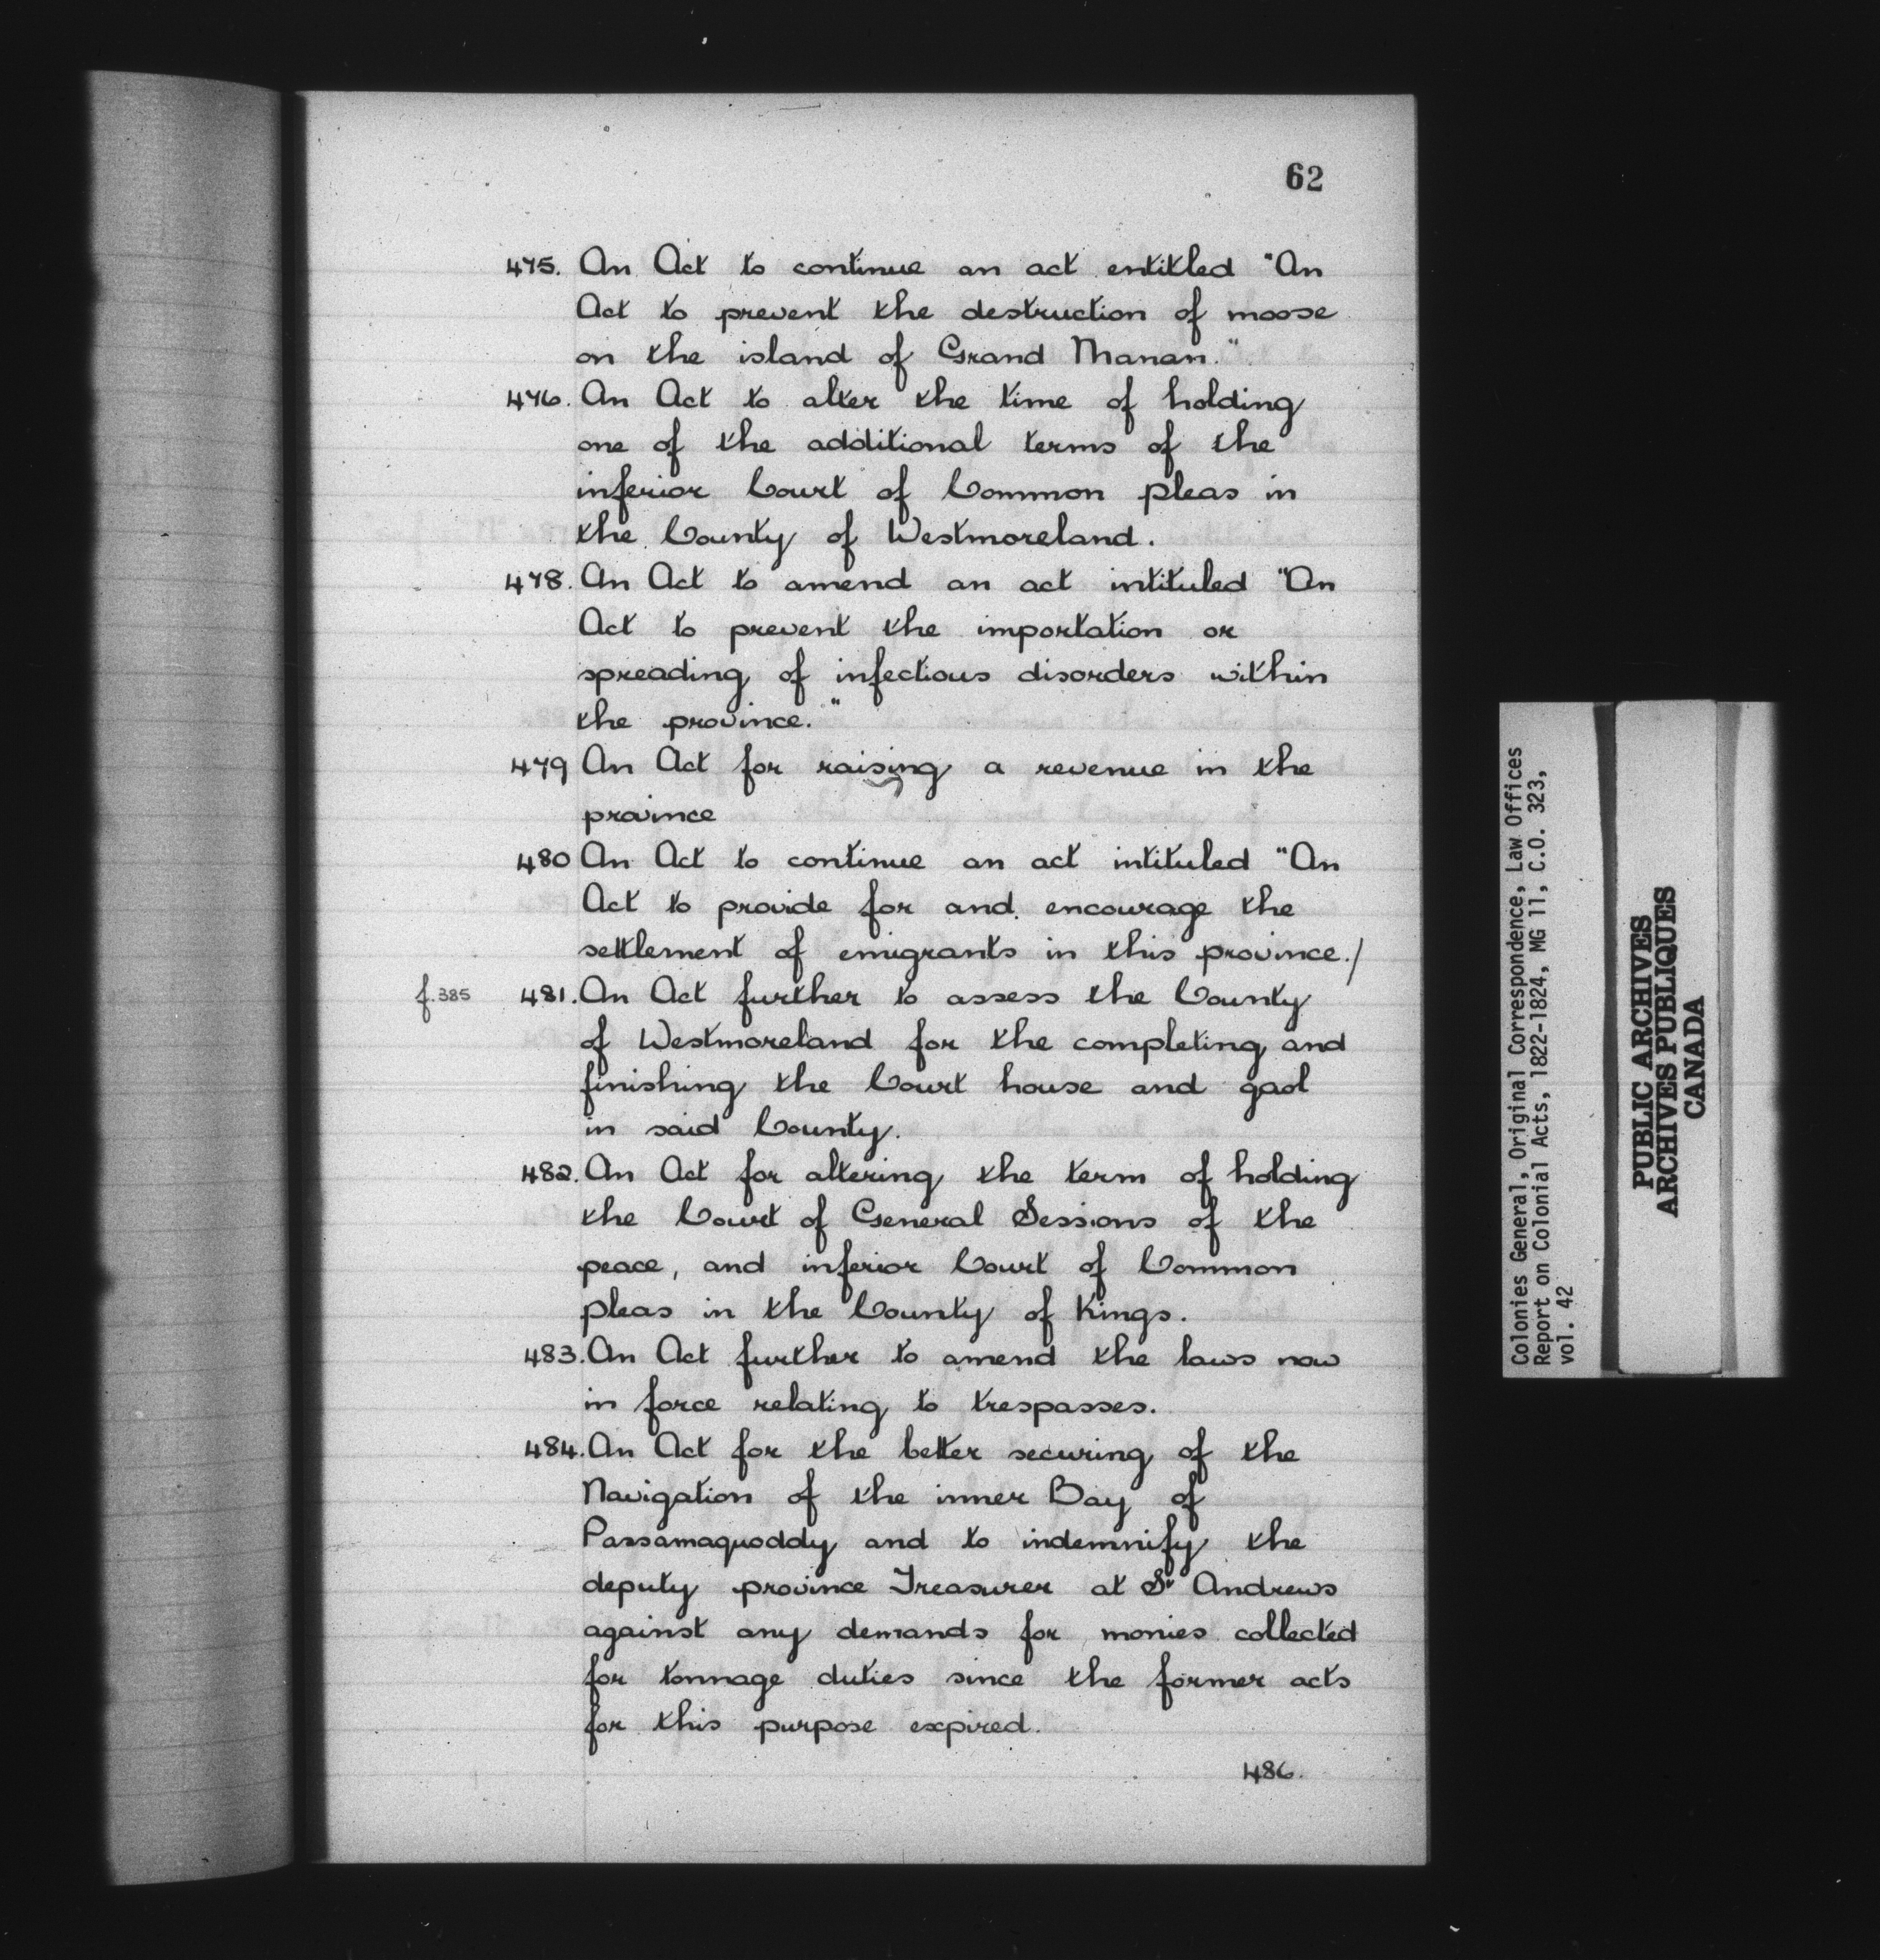 62
475. An Act to continue an act entitled "An
Act to prevent the destruction of moose
on the island of Grand Manan."
476. An Act to alter the time of holding
one of the additional terms of the
inferior Court of Common pleas in
the County of Westmoreland.
478. An Act to amend an act intituled "An
Act to prevent the importation or
spreading of infectious disorders within
the province."
479 An Act for raising a revenue in the
province
480 An Act to continue an act intituled "An
Act to provide for and encourage the
settlement of emigrants in this province./
f.385 481. An Act further to assess the County
of Westmoreland for the completing and
finishing the Court house and gaol
in said County.
482. An Act for altering the term of holding
the Court of General Sessions of the
peace, and inferior Court of Common
pleas in the County of Kings.
483. An Act further to amend the laws now
in force relating to trespasses.
484. An Act for the better securing of the
Navigation of the inner Bay of
Passamaquoddy and to indemnify the
deputy province Treasurer at St Andrews
against any demands for monies collected
for tonnage duties since the former acts
for this purpose expired.
486.
Colonies General, Original Correspondence, Law Offices
Report on Colonial Acts, 1822-1824, MG 11, C.O. 323,
vol. 42
PUBLIC ARCHIVES
ARCHIVES PUBLIQUES
CANADA